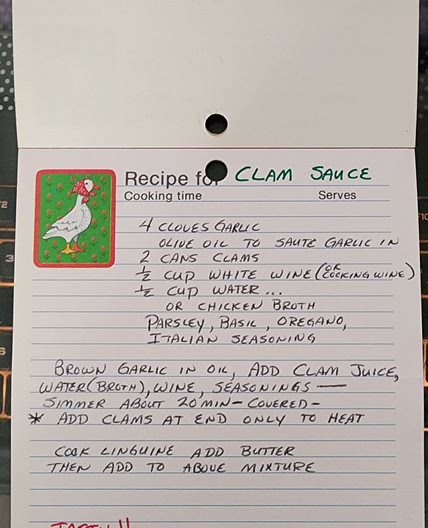 Recipe for CLAM SAUCE
Cooking time Serves
4 CLOVES GARLIC
OLIVE OIL TO SAUTE GARLIC IN
2 CANS CLAMS
½ CUP WHITE WINE (OR COOKING WINE)
½ CUP WATER ...
OR CHICKEN BROTH
PARSLEY, BASIL, OREGANO,
ITALIAN SEASONING
BROWN GARLIC IN OIL, ADD CLAM JUICE,
WATER (BROTH), WINE, SEASONINGS —
SIMMER ABOUT 20 MIN - COVERED -
* ADD CLAMS AT END ONLY TO HEAT
COOK LINGUINE ADD BUTTER
THEN ADD TO ABOVE MIXTURE